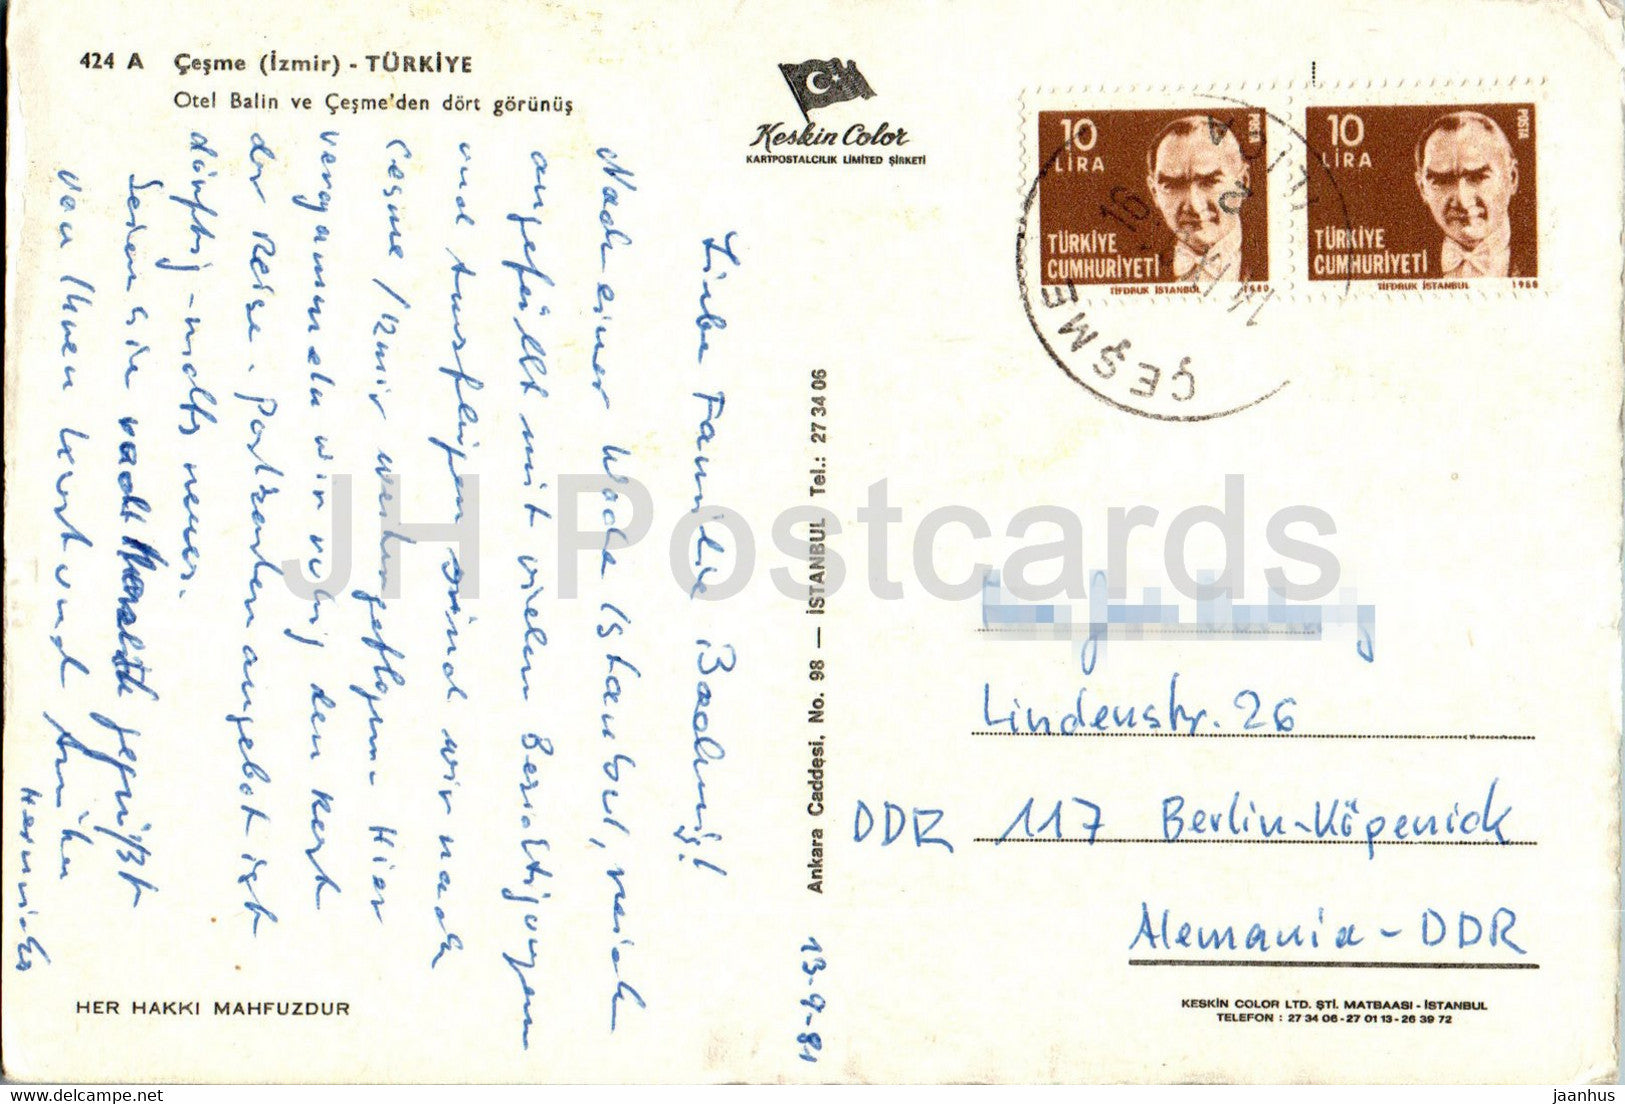 424 A Çeşme (İzmir) - TÜRKİYE
Otel Balin ve Çeşme'den dört görünüş
Keskin Color
KARTPOSTALCILIK LIMITED ŞİRKETİ
10
LİRA
POSTA
TÜRKİYE
CUMHURİYETİ
TİFDRUK İSTANBUL 1980
10
LİRA
POSTA
TÜRKİYE
CUMHURİYETİ
TİFDRUK İSTANBUL 1980
ÇEŞME
13-9-81
Liebe Familie
Nach einer Woche Istanbul, reich
angefüllt mit vielen Besichtigungen
und Ausflügen sind wir nach
Cesme / Izmir weitergeflogen. Hier
vergammeln wir ruhig den Rest
der Reise. Postkartenangebot ist
dürftig - nichts neues.
Seien Sie recht herzlich gegrüßt
von Ihren Horst und
Ankara Caddesi, No. 98 — İSTANBUL Tel.: 27 34 06
Lindenstr. 26
DDR 117 Berlin-Köpenick
Alemania - DDR
HER HAKKI MAHFUZDUR
KESKİN COLOR LTD. ŞTİ. MATBAASI - İSTANBUL
TELEFON : 27 34 06 - 27 01 13 - 26 39 72
JH Postcards
www.hippostcard.com
jaanhus